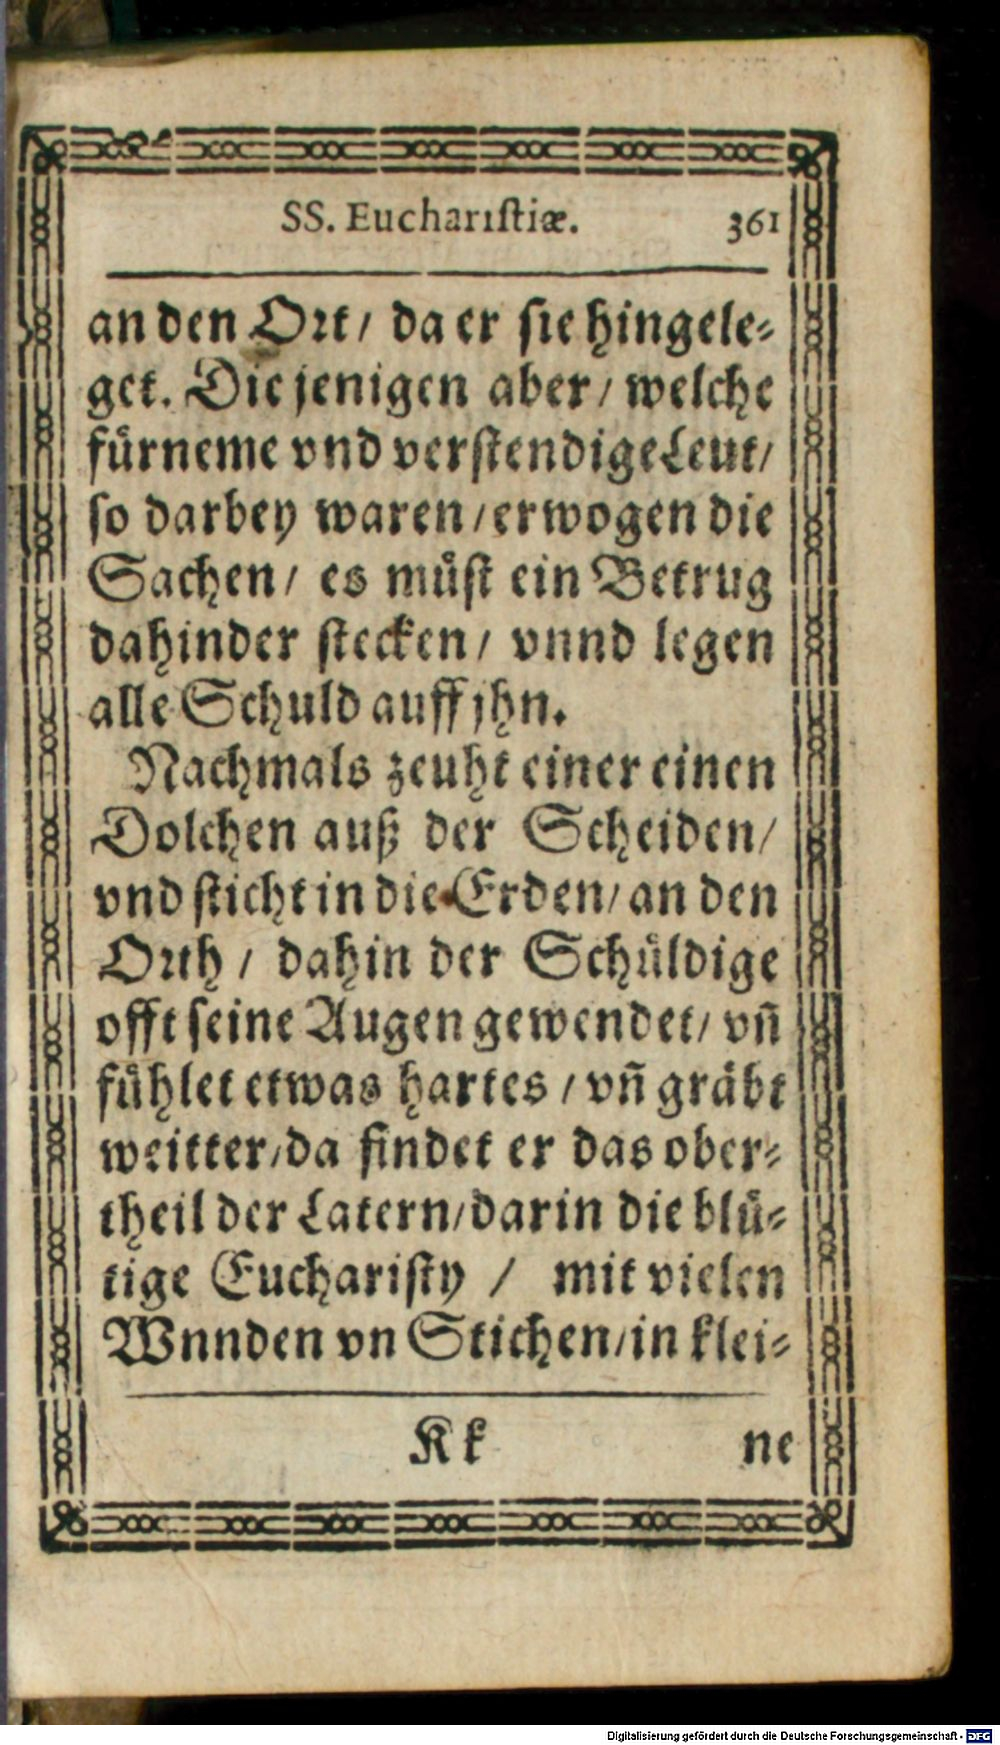 SS. Euchariſtiæ. 361
an den Ort/ da er ſie hingele⸗
get. Die jenigen aber/ welche
fürneme vnd verſtendige Leut/
ſo darbey waren/ erwogen die
Sachen/ es müſt ein Betrug
dahinder ſtecken/ vnnd legen
alle Schuld auff jhn.
Nachmals zeuht einer einen
Dolchen auß der Scheiden/
vnd ſticht in die Erden/ an den
Orth/ dahin der Schüldige
offt ſeine Augen gewendet/ vñ
fühlet etwas hartes/ vñ gräbt
weitter/ da findet er das ober⸗
theil der Latern/ darin die blü⸗
tige Euchariſty / mit vielen
Wnnden vn Stichen/ in klei⸗
Kk ne
Digitalisierung gefördert durch die Deutsche Forschungsgemeinschaft - DFG